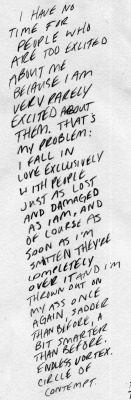 I HAVE NO
TIME FOR
PEOPLE WHO
ARE TOO EXCITED
ABOUT ME
BECAUSE I AM
VERY RARELY
EXCITED ABOUT
THEM. THAT'S
MY PROBLEM:
I FALL IN
LOVE EXCLUSIVELY
WITH PEOPLE
JUST AS LOST
AND DAMAGED
AS I AM, AND
OF COURSE AS
SOON AS I'M
SMITTEN THEY'RE
COMPLETELY
OVER IT AND I'M
THROWN OUT ON
MY ASS ONCE
AGAIN, SADDER
THAN BEFORE, A
BIT SMARTER
THAN BEFORE.
ENDLESS VORTEX.
CIRCLE OF
CONTEMPT.